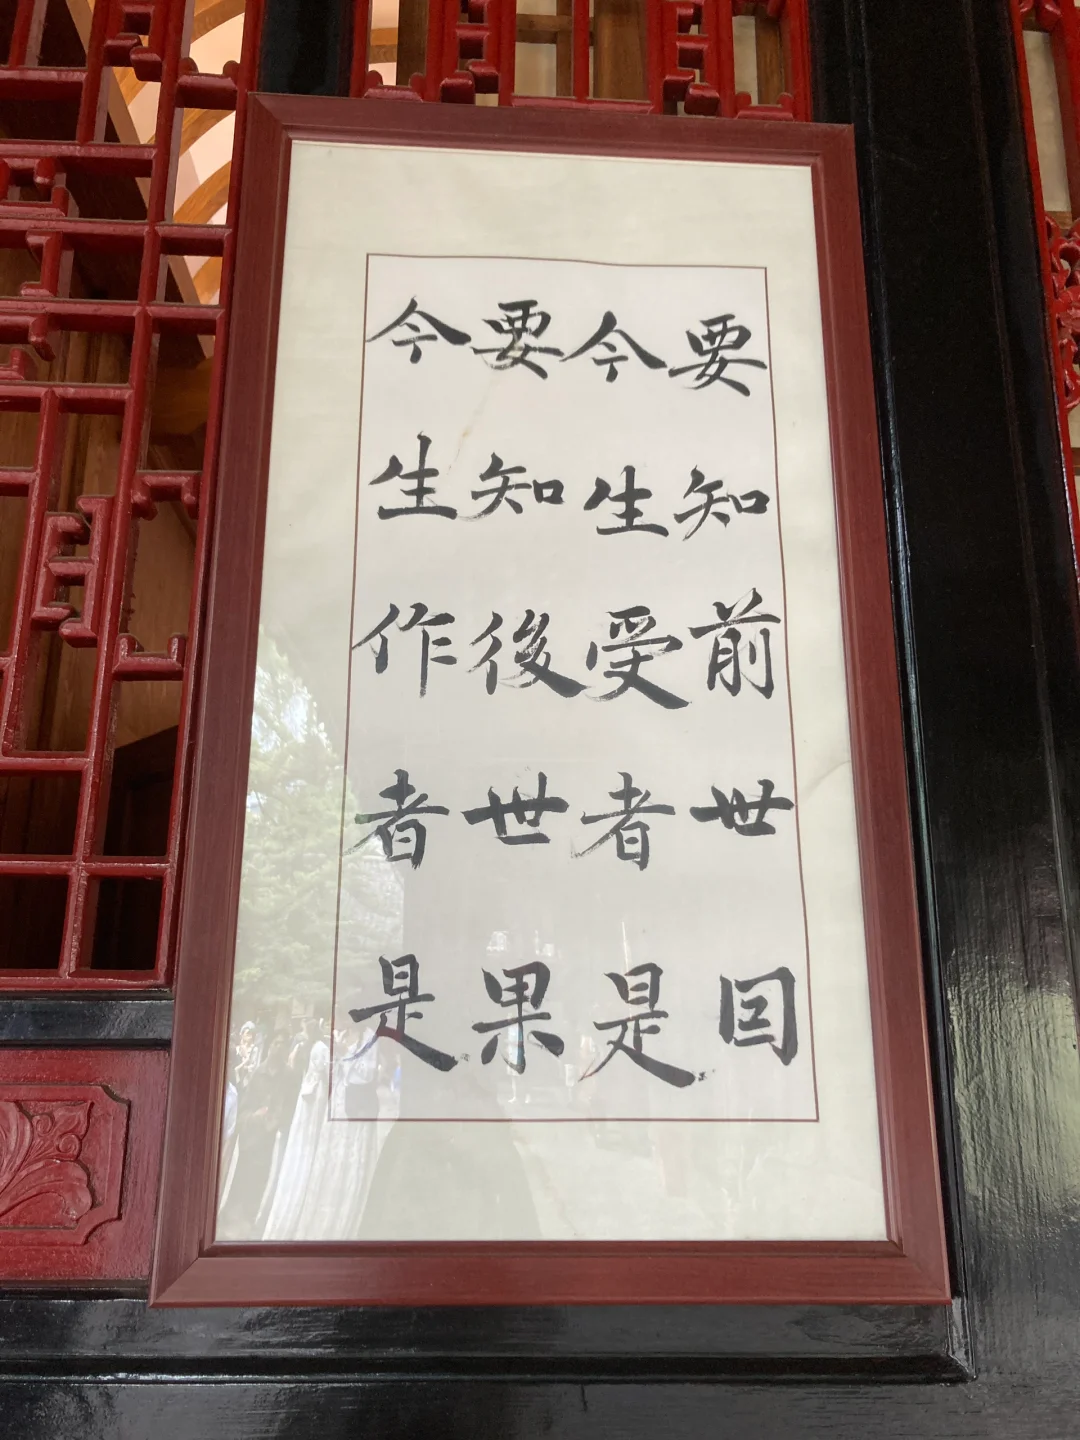 要知前世因
今生受者是
要知後世果
今生作者是